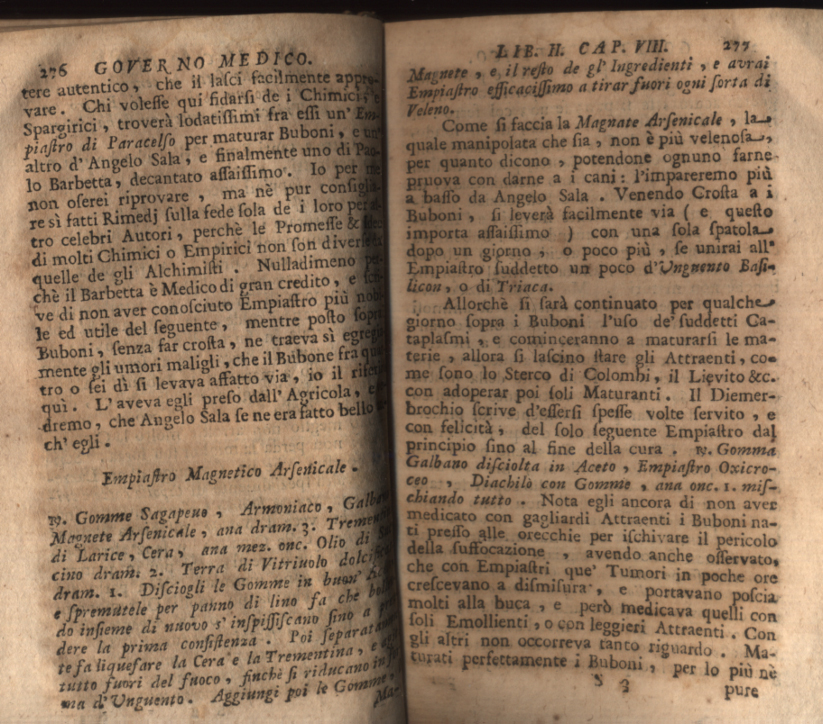 276 GOVERNO MEDICO.
tere autentico, che il lasci facilmente appro-
vare. Chi volesse qui fidarsi de i Chimici, e
Spargirici, troverà lodatissimi fra essi un' Em-
piastro di Paracelso per maturar Buboni, e un'
altro d' Angelo Sala, e finalmente uno di Pao-
lo Barbetta, decantato assaissimo. Io per me
non oserei riprovare, ma nè pur consiglia-
re sì fatti Rimedj sulla fede sola de i loro per
tro celebri Autori, perchè le Promesse &
di molti Chimici o Empirici non son diverse
quelle de gli Alchimisti. Nulladimeno per-
chè il Barbetta è Medico di gran credito, e scri-
ve di non aver conosciuto Empiastro più nobi-
le ed utile del seguente, mentre posto sopra
Buboni, senza far crosta, ne traeva sì egregia-
mente gli umori maligli, che il Bubone fra quat-
tro o sei dì si levava affatto via, io il riferisco
quì. L' aveva egli preso dall' Agricola, e
dremo, che Angelo Sala se ne era fatto bello
ch' egli.
Empiastro Magnetico Arsenicale.
℞. Gomme Sagapeno, Armoniaco, Galbano
Magnete Arsenicale, ana dram. 3. Trementina
di Larice, Cera, ana mez. onc. Olio di
cino dram. 2. Terra di Vitriuolo dolcificata
dram. 1. Disciogli le Gomme in buon' Aceto
e spremutele per panno di lino fa che bollen-
do insieme di nuovo s' inspissiscano sino a pren-
dere la prima consistenza. Poi separatamen-
te fa liquefare la Cera e la Trementina, e
tutto fuori del fuoco, finchè si riducano in for-
ma d'Unguento. Aggiungi poi le Gomme,
Mag-
LIB. II. CAP. VIII. 277
Magnete, e il resto de gl' Ingredienti, e avrai
Empiastro efficacissimo a tirar fuori ogni sorta di
Veleno.
Come si faccia la Magnate Arsenicale, la
quale manipolata che sia, non è più velenosa,
per quanto dicono, potendone ognuno farne
pruova con darne a i cani: l'impareremo più
a basso da Angelo Sala. Venendo Crosta a i
Buboni, si leverà facilmente via ( e questo
importa assaissimo ) con una sola spatola
dopo un giorno, o poco più, se unirai all'
Empiastro suddetto un poco d'Unguento Basi-
licon, o di Triaca.
Allorchè si sarà continuato per qualche
giorno sopra i Buboni l'uso de' suddetti Ca-
taplasmi, e cominceranno a maturarsi le ma-
terie, allora si lascino stare gli Attraenti, co-
me sono lo Sterco di Colombi, il Lievito &c.
con adoperar poi soli Maturanti. Il Diemer-
brochio scrive d'essersi spesse volte servito, e
con felicità, del solo seguente Empiastro dal
principio sino al fine della cura. ℞. Gomma
Galbano disciolta in Aceto, Empiastro Oxicro-
ceo, Diachilò con Gomme, ana onc. 1. mis-
chiando tutto. Nota egli ancora di non aver
medicato con gagliardi Attraenti i Buboni na-
ti presso alle orecchie per ischivare il pericolo
della suffocazione, avendo anche osservato,
che con Empiastri que' Tumori in poche ore
crescevano a dismisura, e portavano poscia
molti alla buca, e però medicava quelli con
soli Emollienti, o con leggieri Attraenti. Con
gli altri non occorreva tanto riguardo. Ma-
turati perfettamente i Buboni, per lo più nè
S 3 pure